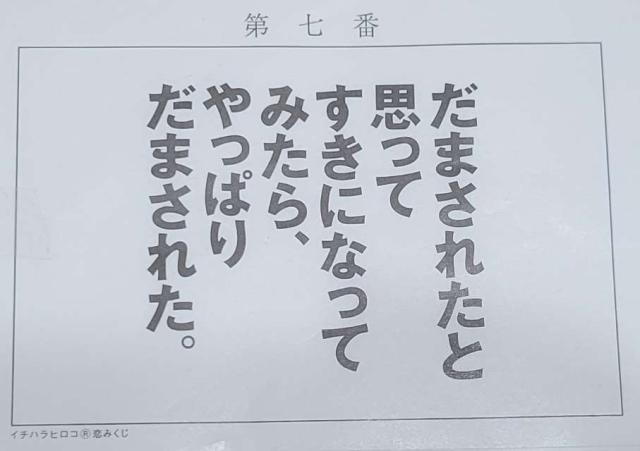 第七番
だまされたと
思って
すきになって
みたら、
やっぱり
だまされた。
イチハラヒロコ®恋みくじ